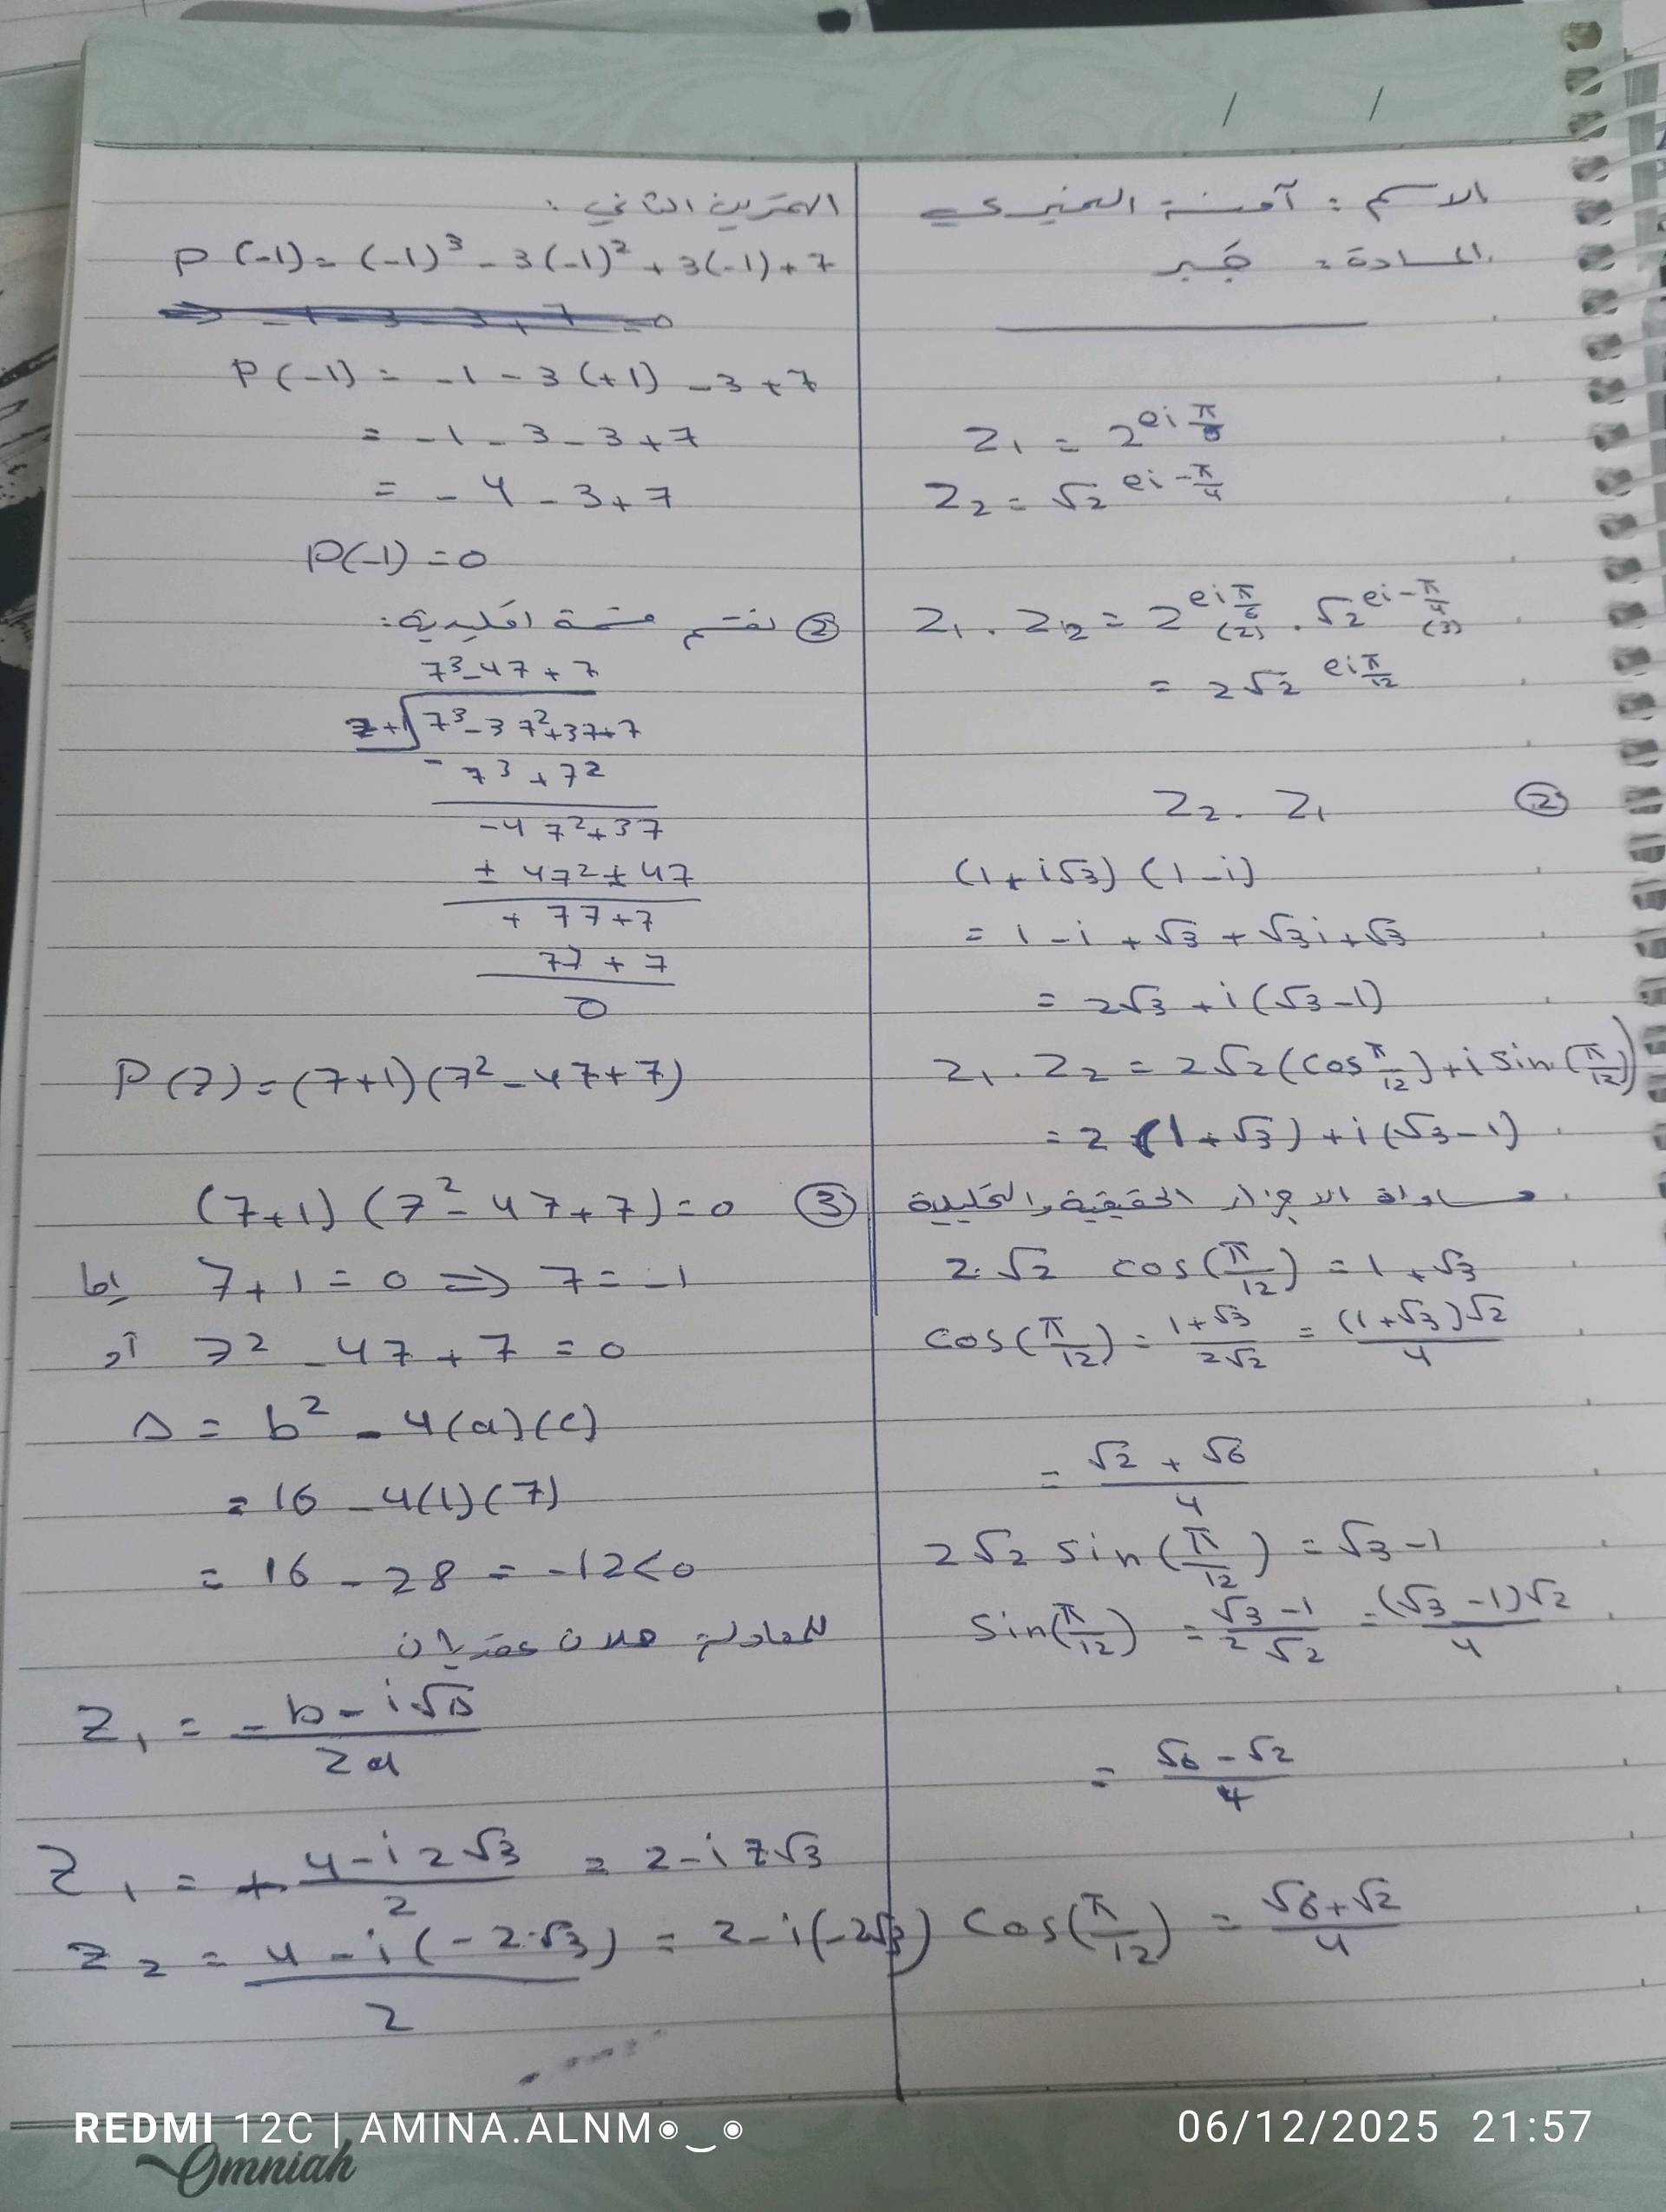 / /
الاسم : آمنة النميري
المادة : جبر
Z₁ = 2^{ei π/6}
Z₂ = √2^{ei -π/4}
Z₁ . Z₂ = 2^{ei π/6 (2)} . √2^{ei -π/4 (3)}
= 2√2^{ei π/12}
② Z₂ . Z₁
(1 + i√3) (1 - i)
= 1 - i + √3 + √3 i + √3
= 2√3 + i (√3 - 1)
Z₁ . Z₂ = 2√2 (cos π/12) + i sin (π/12)
= 2 (1 + √3) + i (√3 - 1)
مساواة الاجزاء الحقيقية والتخيلية
2√2 cos(π/12) = 1 + √3
cos(π/12) = (1 + √3)/(2√2) = ((1 + √3)√2)/4
= (√2 + √6)/4
2√2 sin(π/12) = √3 - 1
sin(π/12) = (√3 - 1)/(2√2) = ((√3 - 1)√2)/4
= (√6 - √2)/4
cos(π/12) = (√6 + √2)/4
التمرين الثاني :
P(-1) = (-1)³ - 3(-1)² + 3(-1) + 7
P(-1) = -1 - 3(+1) - 3 + 7
= -1 - 3 - 3 + 7
= -4 - 3 + 7
P(-1) = 0
② نقسم قسمة اقليدية :
7³ - 47 + 7
z+1 √ 7³ - 37² + 37 + 7
- 7³ + 7²
-47² + 37
± 47² ± 47
+ 77 + 7
77 + 7
0
P(7) = (7+1)(7² - 47 + 7)
③ (7+1) (7² - 47 + 7) = 0
إما 7 + 1 = 0 ⇒ 7 = -1
أو 7² - 47 + 7 = 0
Δ = b² - 4(a)(c)
= 16 - 4(1)(7)
= 16 - 28 = -12 < 0
للمعادلة حلان عقديان
Z₁ = (-b - i√Δ)/2a
Z₁ = + (4 - i 2√3)/2 = 2 - i 2√3
Z₂ = (4 - i(-2√3))/2 = 2 - i(-2√3)
REDMI 12C | AMINA.ALNM◉‿◉
06/12/2025 21:57
Omniah